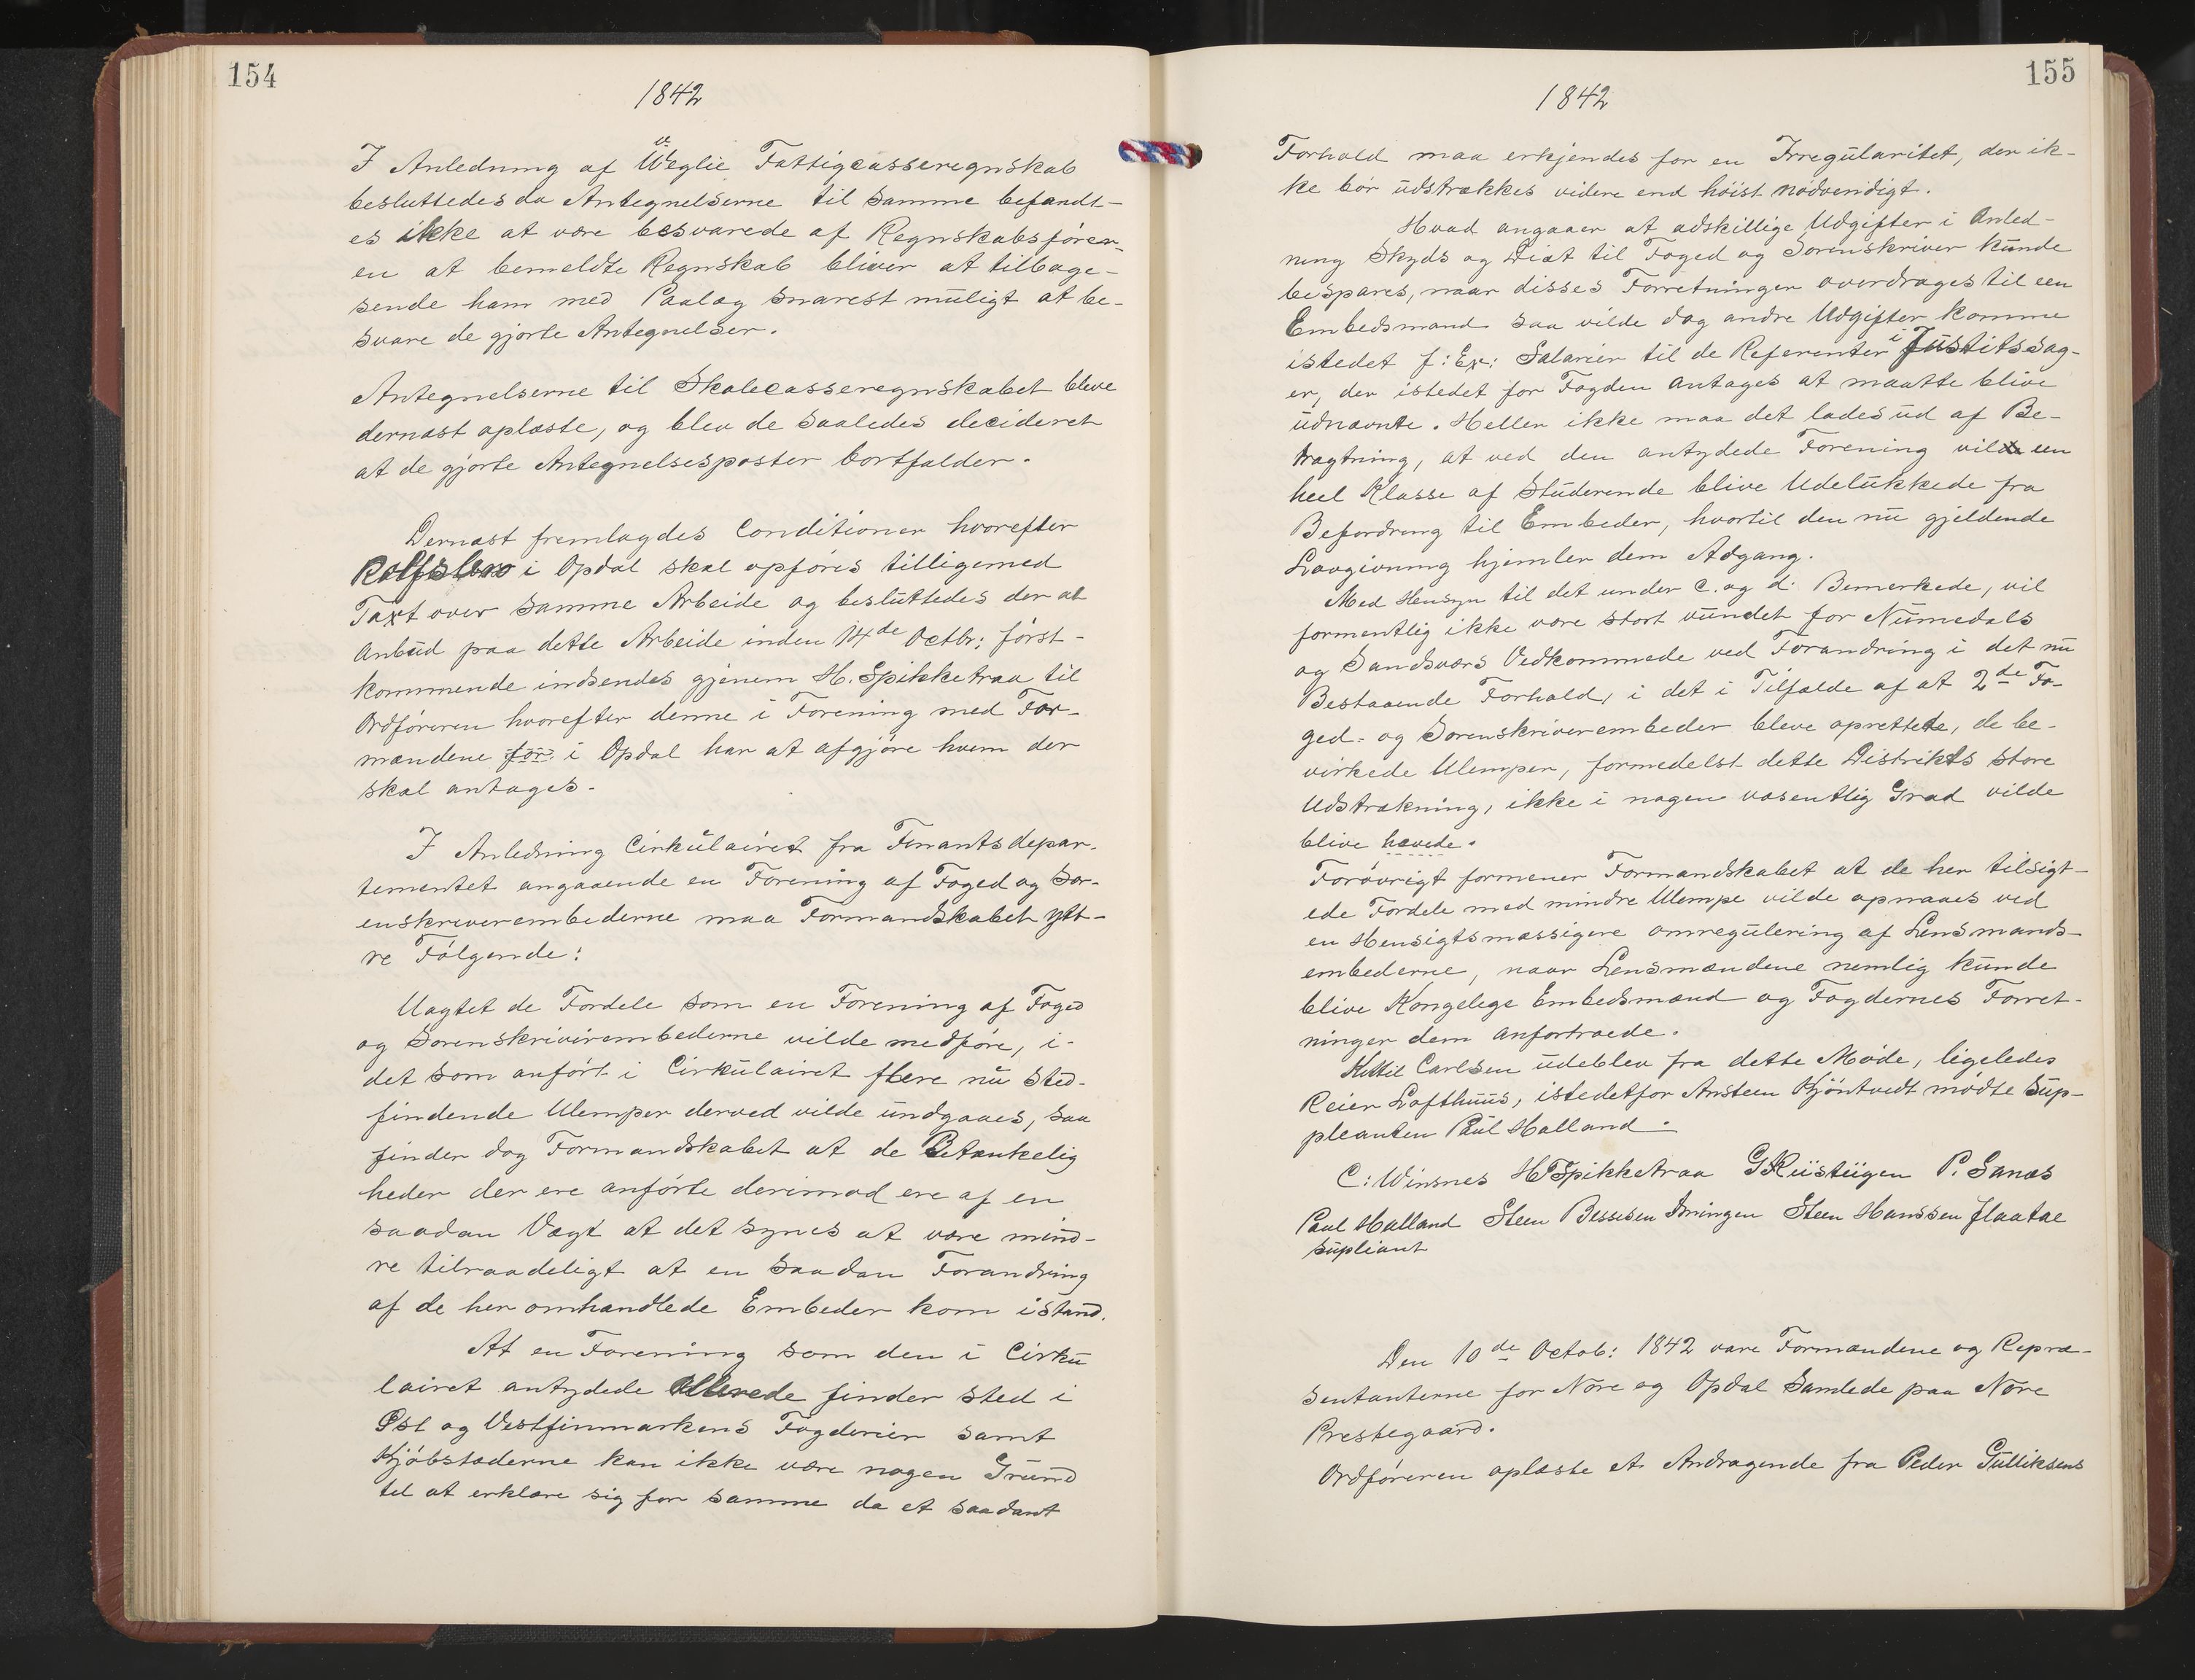 154
1842
I Anledning af Weglie Fattigcasseregnskab
besluttedes da Antegnelserne til Samme befandt-
es ikke at være besvarede af Regnskabsförer-
en at bemeldte Regnskab bliver at tilbage-
sende ham med Paalæg snarest muligt at be-
svare de gjorte Antegnelser.
Antegnelserne til Skolecasseregnskabet bleve
dernæst oplæste, og blev de saaledes decideret
at de gjorte Antegnelsesposter bortfalder.
Dernæst fremlagdes Conditioner hvorefter
Rolfsbro i Opdal skal opföres tilligemed
Taxt over samme Arbeide og besluttedes der at
Anbud paa dette Arbeide inden 14de Octbr: först-
kommende indsendes gjenem H. Spikketraa til
Ordföreren hvorefter denne i Forening med For-
mændene for i Opdal har at afgjöre hvem der
skal antages.
I Anledning Cirkulairet fra Finantsdepar-
tementet angaaende en Forening af Foged og Sor-
enskriverembederne maa Formandskabet ytt-
re Fölgende:
Uagtet de Fordele som en Forening af Foged
og Sorenskriverembederne vilde medföre, i-
det som anfört i Cirkulairet flere nu Sted-
findende Ulemper derved vilde undgaaes, saa
finder dog Formandskabet at de Betænkelig
heder der ere anförte derimod ere af en
saadan Vægt at det synes at være mind-
re tilraadeligt at en saadan Forandring
af de her omhandlede Embeder kom istand.
At en Forening som den i Cirku
lairet antydede allerede finder Sted i
Öst og Vestfinmarkens Fogderier samt
Kjöbstæderne kan ikke være nogen Grund
til at erklære sig for samme da et saadant
155
1842
Forhold maa erkjendes for en Irregularitet, der ik-
ke bör udstrækkes videre end höist nödvendigt.
Hvad angaaer at adskillige Udgifter i Anled-
ning Skyds og Diæt til Foged og Sorenskriver kunde
bespares, naar disses Forretninger overdrages til een
Embedsmand saa vilde dog andre Udgifter komme
istedet f: Ex: Salarier til de Referenter i Justitssag-
er, der istedet for Fogden antages at maatte blive
udnævnte. Heller ikke maa det lades ud af Be-
tragtning, at ved den antydede Forening vil en
heel Klasse af Studerende blive Udelukkede fra
Befordring til Embeder, hvortil den nu gjeldende
Lovgivning hjemler dem Adgang.
Med Hensyn til det under c. og d: Bemerkede, vil
formentlig ikke være stort vundet for Numedals
og Sandsværs Vedkommede ved Forandring i det nu
Bestaaende Forhold, i det i Tilfælde af at 2de Fo-
ged- og Sorenskriverembeder bleve oprettede, de be-
virkede Ulemper, formedelst dette Distrikts store
Udstrækning, ikke i nogen væsentlig Grad vilde
blive hævede.
Forövrigt formener Formandskabet at de her tilsigt-
ede Fordele med mindre Ulempe vilde opnaaes ved
en Hensigtsmæssigere omregulering af Lensmands-
embederne, naar Lensmændene nemlig kunde
blive Kongelige Embedsmænd og Fogdernes Forret-
ninger dem anfortroede.
Kittil Carlsen udeblev fra dette Möde, ligeledes
Reier Lofthuus, istedetfor Ansteen Kjöntvedt mödte Sup-
pleanten Paul Halland.
C: Winsnes H Spikketraa G Ruistuigen P. Sanæs
Paul Halland Steen Bessesen Steen Hanssen Flaatae
supliant
Den 10de Octob: 1842 vare Formændene og Repræ-
sentanterne for Nore og Opdal Samlede paa Nore
Prestegaard.
Ordföreren oplæste et Andragende fra Peder Gulliksens